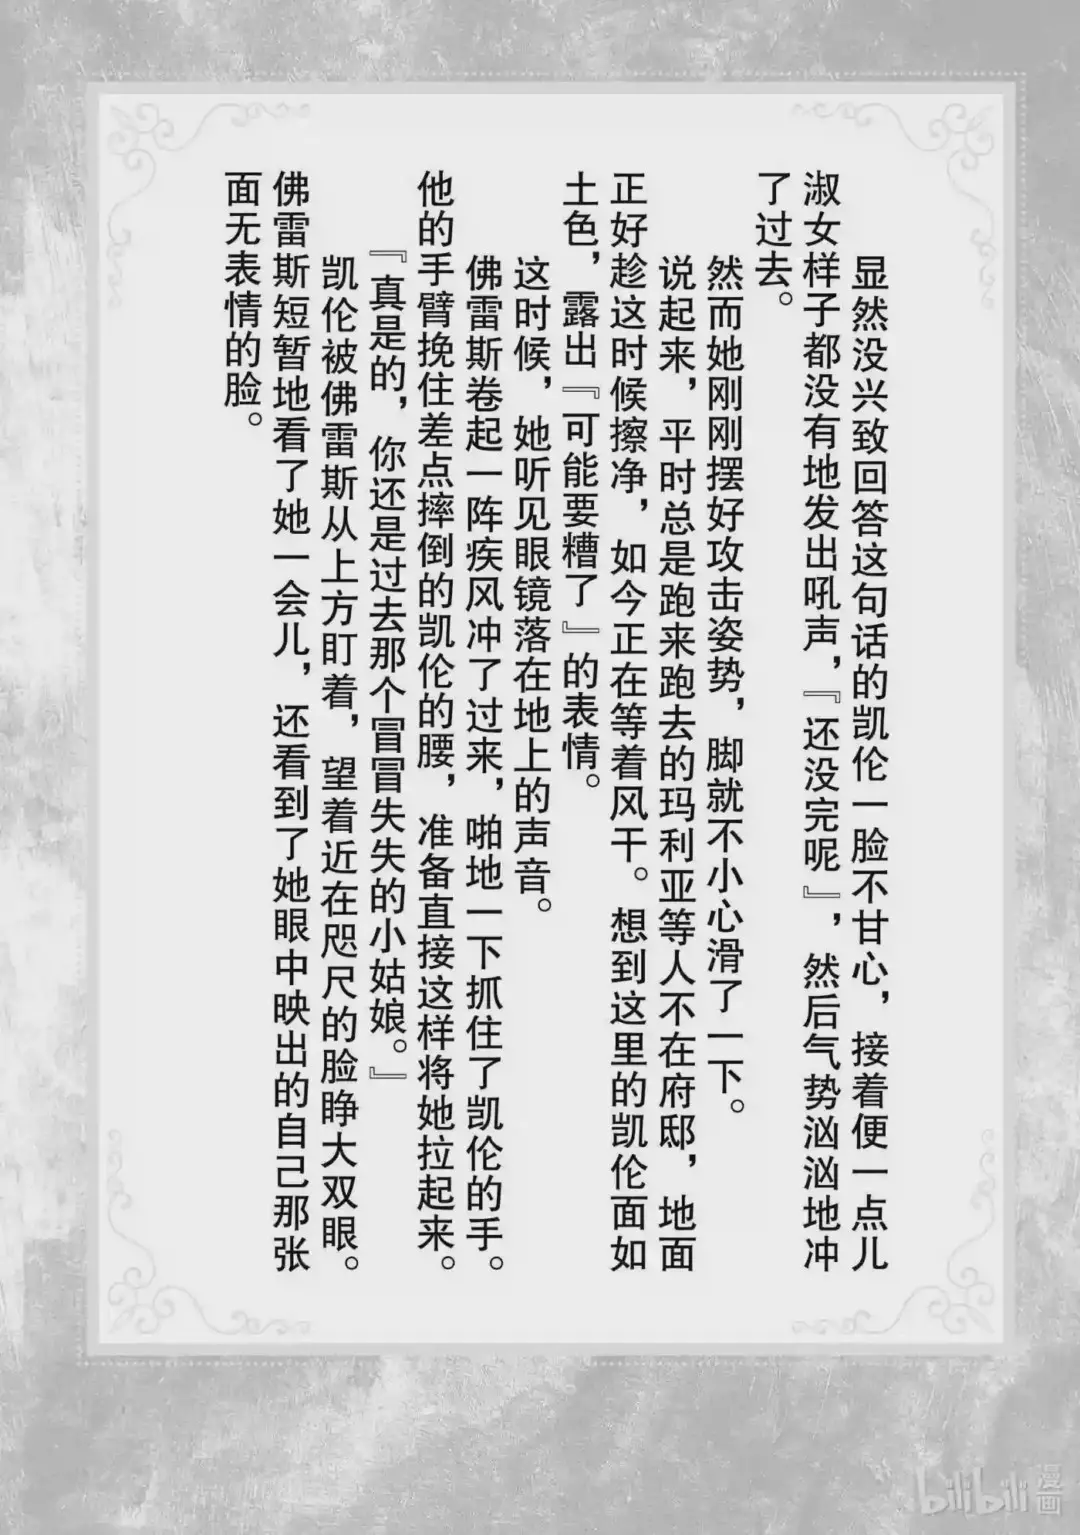 显然没兴致回答这句话的凯伦一脸不甘心，接着便一点儿
淑女样子都没有地发出吼声，『还没完呢』，然后气势汹汹地冲
了过去。
然而她刚刚摆好攻击姿势，脚就不小心滑了一下。
说起来，平时总是跑来跑去的玛利亚等人不在府邸，地面
正好趁这时候擦净，如今正在等着风干。想到这里的凯伦面如
土色，露出『可能要糟了』的表情。
这时候，她听见眼镜落在地上的声音。
佛雷斯卷起一阵疾风冲了过来，啪地一下抓住了凯伦的手。
他的手臂挽住差点摔倒的凯伦的腰，准备直接这样将她拉起来。
『真是的，你还是过去那个冒冒失失的小姑娘。』
凯伦被佛雷斯从上方盯着，望着近在咫尺的脸睁大双眼。
佛雷斯短暂地看了她一会儿，还看到了她眼中映出的自己那张
面无表情的脸。
bilibili漫画